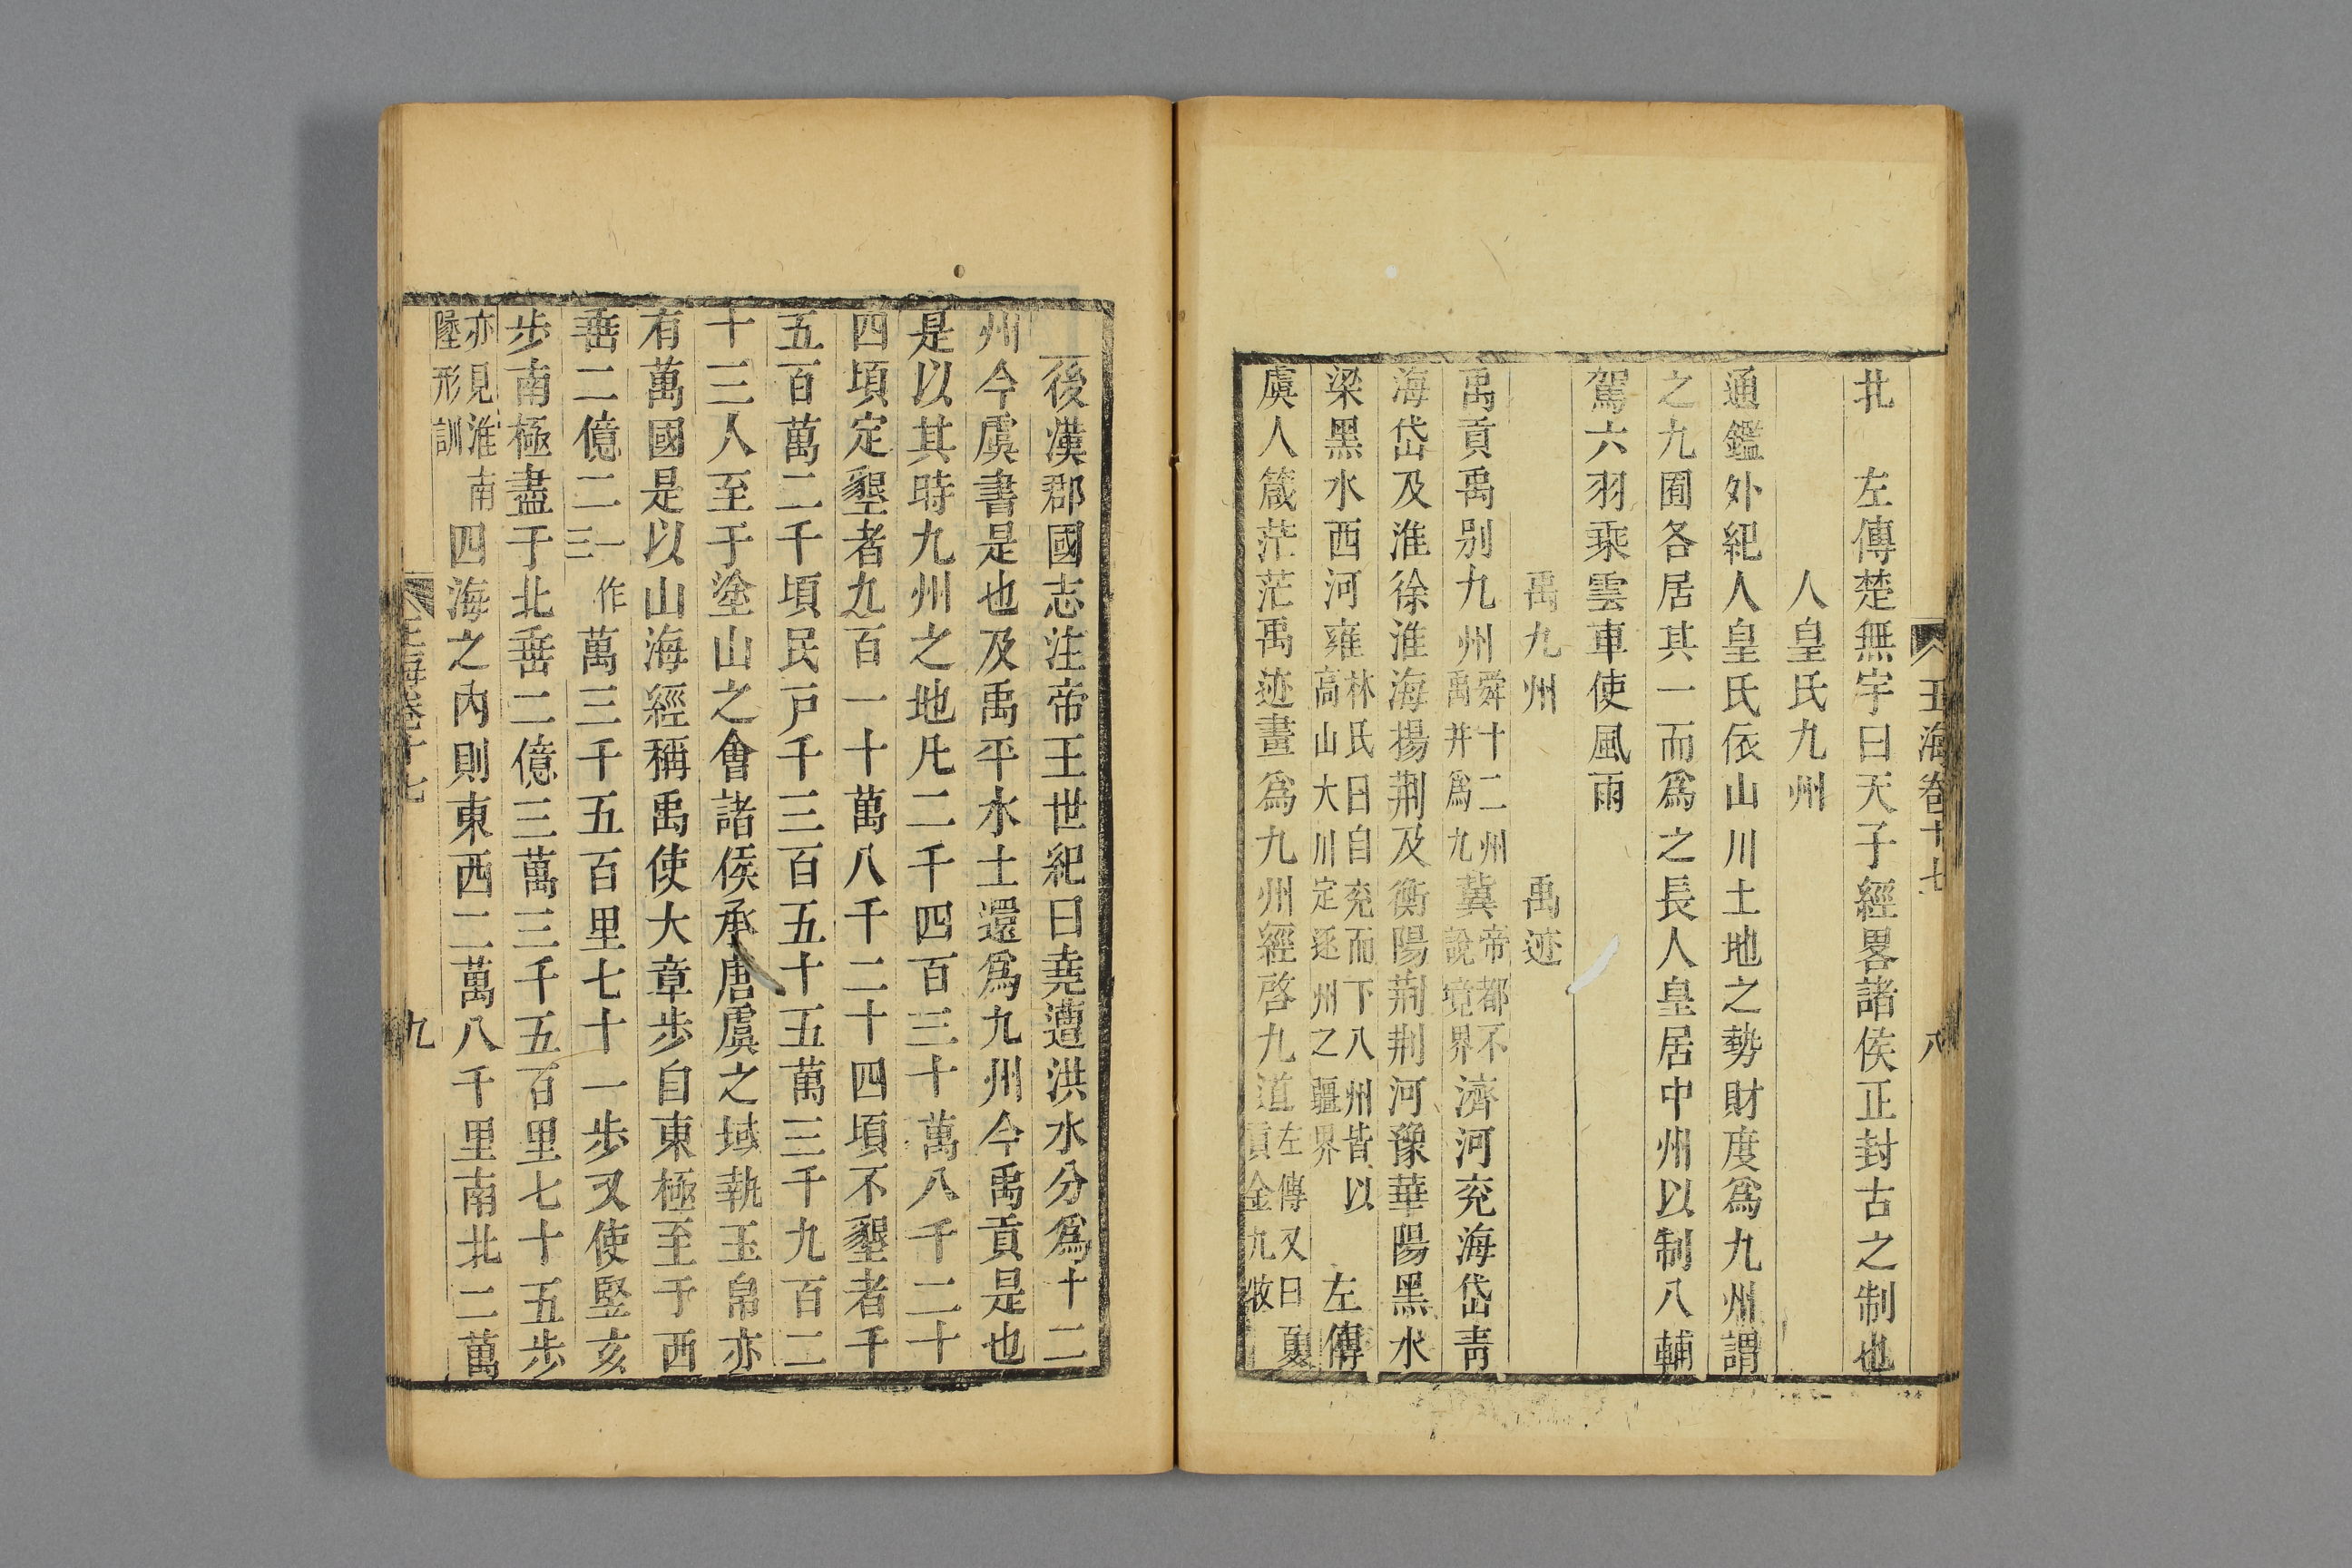 玉海卷十七　八
北　左傳楚無宇曰天子經畧諸侯正封古之制也
人皇氏九州
通鑑外紀人皇氏依山川土地之勢財度爲九州謂
之九囿各居其一而爲之長人皇居中州以制八輔
駕六羽乘雲車使風雨
禹九州　禹迹
禹貢禹别九州舜十二州禹并爲九冀帝都不說境界濟河兖海岱青
海岱及淮徐淮海揚荆及衡陽荆荆河豫華陽黑水
梁黑水西河雍林氏曰自兖而下八州皆以高山大川定逐州之疆界　左傳
虞人箴茫茫禹迹畫爲九州經啓九道左傳又曰夏貢金九牧
後漢郡國志注帝王世紀曰堯遭洪水分爲十二
州今虞書是也及禹平水土還爲九州今禹貢是也
是以其時九州之地凡二千四百三十萬八千二十
四頃定墾者九百一十萬八千二十四頃不墾者千
五百萬二千頃民戸千三百五十五萬三千九百二
十三人至于塗山之會諸侯承唐虞之域執玉帛亦
有萬國是以山海經稱禹使大章步自東極至于西
垂二億二一作三萬三千五百里七十一步又使竪亥
步南極盡于北垂二億三萬三千五百里七十五步
亦見淮南隆形訓四海之內則東西二萬八千里南北二萬
玉海卷十七　九